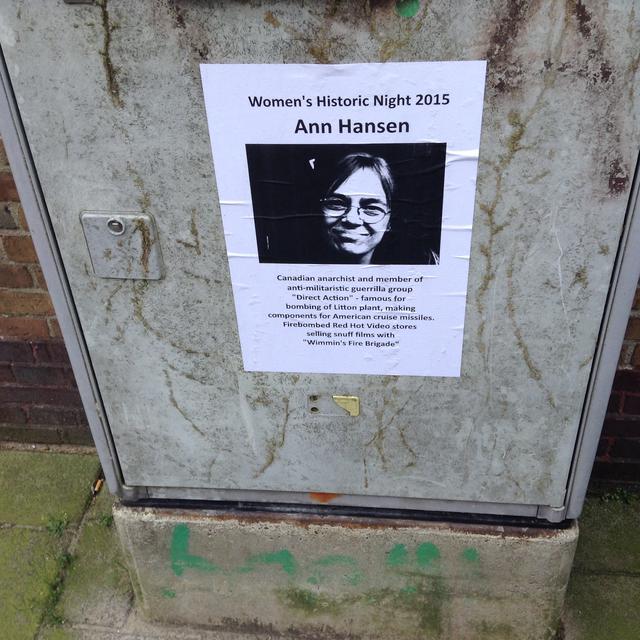 Women's Historic Night 2015
Ann Hansen
Canadian anarchist and member of
anti-militaristic guerrilla group
"Direct Action" - famous for
bombing of Litton plant, making
components for American cruise missiles.
Firebombed Red Hot Video stores
selling snuff films with
"Wimmin's Fire Brigade"